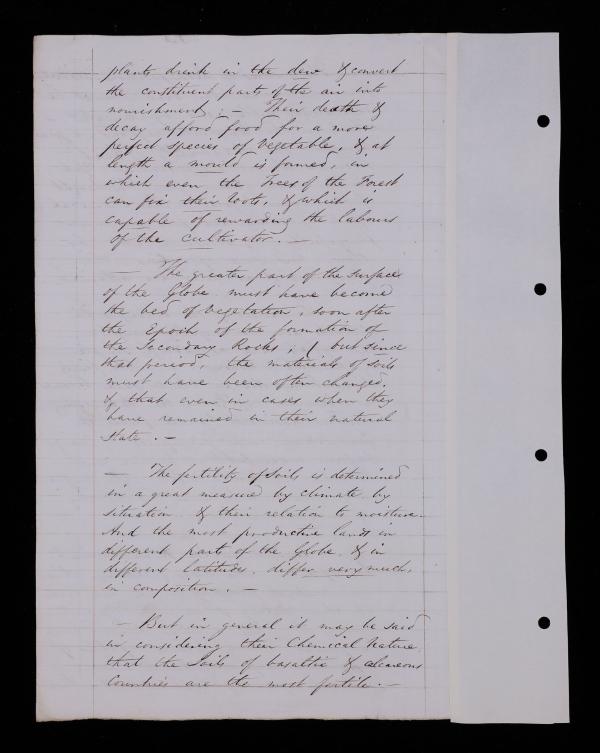 plants drink in the dew & convert
the constituent parts of the air into
nourishment. — Their death &
decay afford food for a more
perfect species of vegetable, & at
length a mould is formed, in
which even the Trees of the Forest
can fix their roots, & which is
capable of rewarding the labours
of the cultivator. —
— The greater part of the surface
of the Globe must have become
the bed of vegetation, soon after
the Epoch of the formation of
the Secondary Rocks; / but since
that period, the materials of soils
must have been often changed,
& that even in cases when they
have remained in their natural
state. —
— The fertility of soils is determined
in a great measure by climate, by
situation, & their relation to moisture.
And the most productive lands in
different parts of the Globe, & in
different latitudes, differ very much,
in composition. —
— But in general it may be said
in considering their Chemical Nature,
that the Soils of basaltic & calcareous
Countries are the most fertile. —